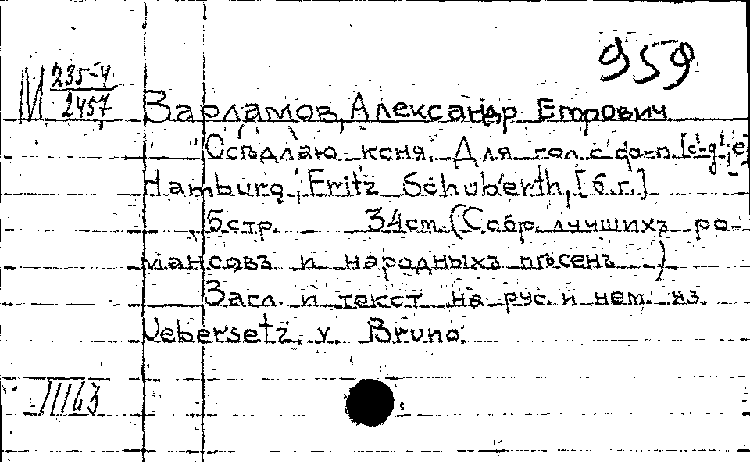 959
М 235-4
2457
Варламов, Александр Егорович
Осѣдлаю коня. Для гол. с ф-п. [c¹-g²; e]
Hamburg, Fritz Schuberth, [б.г.]
5 стр. 34 cm. (Собр. лучшихъ ро-
мансовъ и народныхъ пѣсенъ )
Загл. и текст на рус. и нем. яз.
Uebersetz. v. Bruno.
11163